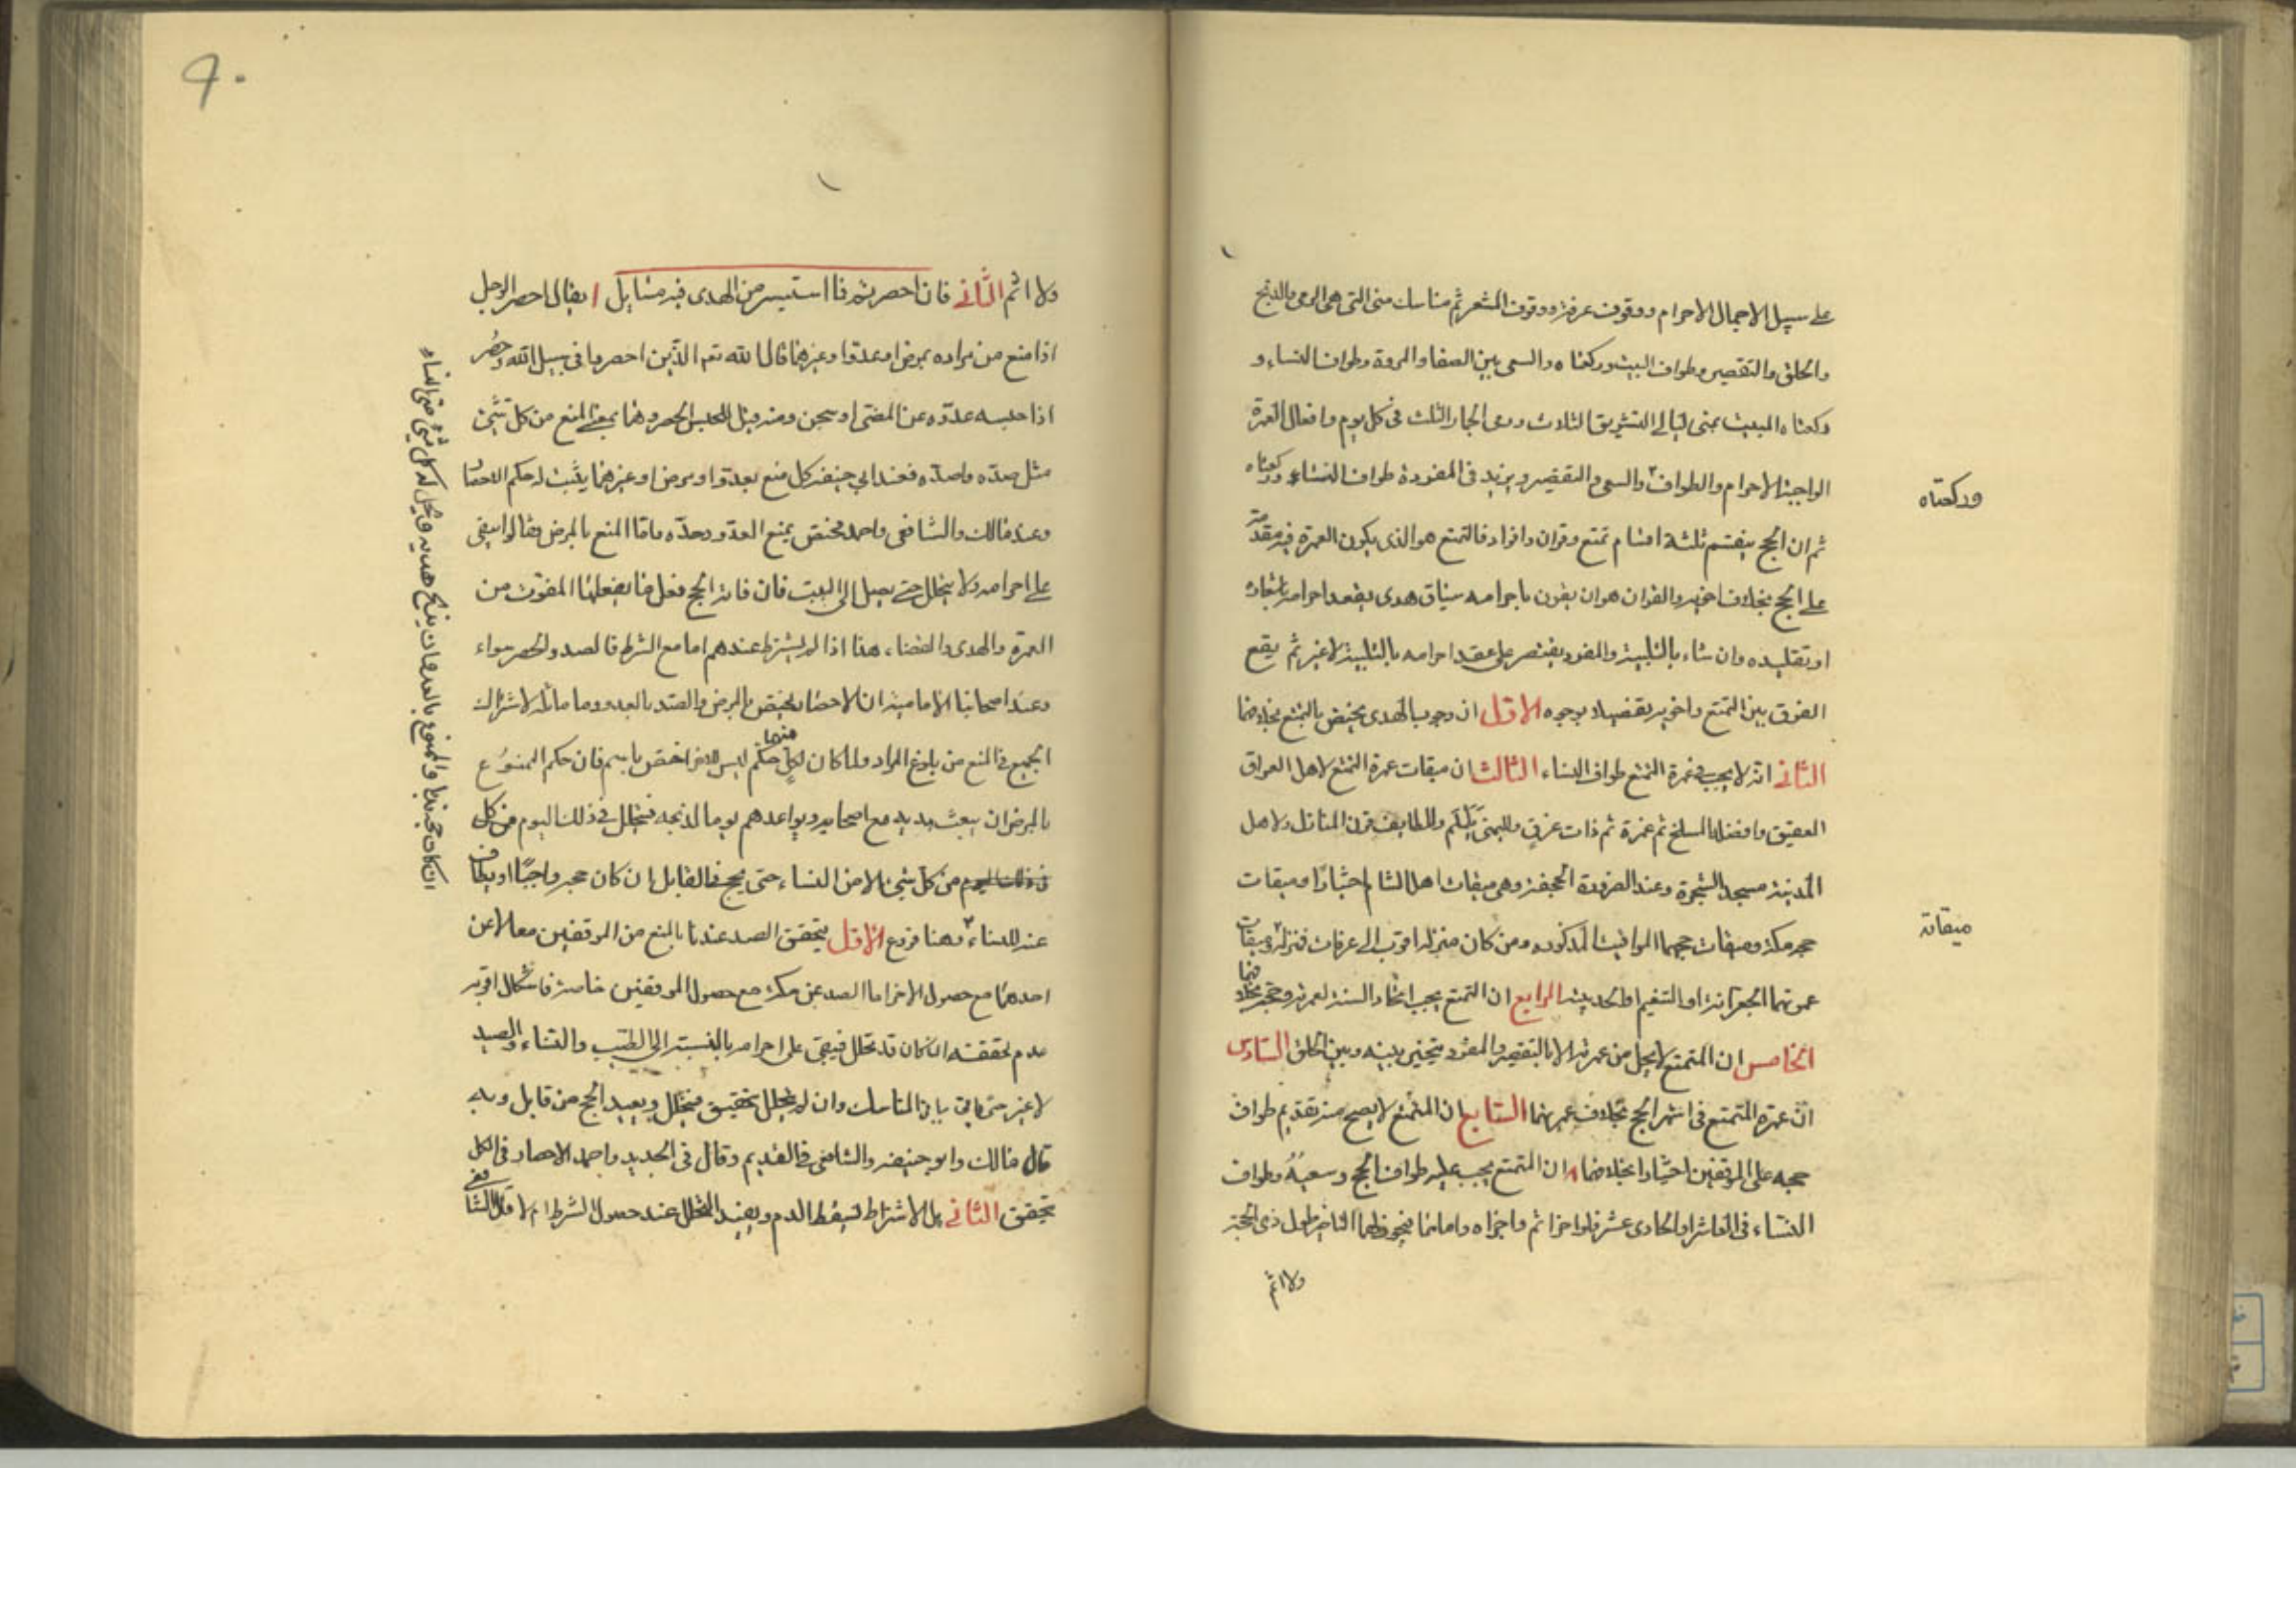 على سبيل الاجمال الاحرام ووقوف عرفة ووقوف المشعر ثم مناسك منى التى هى الرمى والذبح
والحلق والتقصير وطواف البيت وركعتاه والسعى بين الصفا والمروة وطواف النساء و
ركعتاه المبيت بمنى ليالى التشريق الثلاث ورمى الجمار الثلث فى كل يوم وافعال العمرة
الواجبة الاحرام والطواف والسعى والتقصير ويزيد فى المفردة طواف النساء وركعتاه
وركعتاه
ثم ان الحج ينقسم ثلثة اقسام تمتع وقران وافراد فالتمتع هو الذى يكون العمرة فيه مقدمة
على الحج بخلاف اخويه والقران هو ان يقرن باحرامه سياق هدى يعقد احرامه باشعاره
او تقليده وان شاء بالتلبية والمفرد يقتصر على عقد احرامه بالتلبية لا غير ثم يقع
الفرق بين التمتع واخويه تفصيلا بوجوه الاول ان وجوب الهدى يختص بالتمتع بخلافهما
الثانى انه لا يجب فى عمرة التمتع طواف النساء الثالث ان ميقات عمرة التمتع لاهل العراق
العقيق وافضله المسلخ ثم غمرة ثم ذات عرق ولليمنى يلملم وللطايف قرن المنازل ولاهل
المدينة مسجد الشجرة وعند الضرورة الجحفة وهى ميقات اهل الشام اختيارا وميقات
حجه مكة وميقات حجهما المواقيت المذكورة ومن كان منزله اقرب الى عرفات فمنزله وميقات
ميقاته
عمرتهما الجعرانة او التنعيم او الحديبية الرابع ان التمتع يجب اتحاد السنة لعمرته وحجه بخلافهما
الخامس ان المتمتع لا يحل من عمرته الا بالتقصير والمفرد يتخير بينه وبين الحلق السادس
ان عمرة المتمتع فى اشهر الحج بخلاف عمرتهما السابع ان المتمتع لا يصح منه تقديم طواف
حجه على الموقفين اختيارا بخلافهما ٨ ان المتمتع يجب عليه طواف الحج وسعيه وطواف
النساء فى العاشر او الحادى عشر فلو اخر اثم واجزاه واما هما فيجوز لهما التاخير طول ذى الحجة
ولا اثم
٩٠
ولا اثم الثانى فان احصرتم فما استيسر من الهدى فيه مسايل ا يقال احصر الرجل
اذا منع من مراده بمرض او عدو او غيرهما قال الله تعم الذين احصروا فى سبيل الله وحصر
اذا حبسه عدوه عن المضى او سجن ومنه قيل للحبس الحصر وهما بمعنى المنع من كل شئ
مثل صده واصده فعند ابى حنيفة كل منع بعدو او مرض او غيرهما يثبت له حكم الاحصار
وعند مالك والشافعى واحمد يختص بمنع العدو وحده واما المنع بالمرض فقالوا يبقى
على احرامه ولا يتحلل حتى يصل الى البيت فان فاته الحج فعل ما يفعله المفوت من
العمرة والهدى والقضاء هذا اذا لم يشترط عندهم اما مع الشرط فالصد والحصر سواء
وعند اصحابنا الامامية ان الاحصار يختص بالمرض والصد بالعدو وما ماثله لاشتراك
الجميع فى المنع من بلوغ المراد ولما كان لكل منهما حكم ليس للاخر اختص باسم فان حكم الممنوع
بالمرض ان يبعث بهديه مع اصحابه ويواعدهم يوما لذبحه فيتحلل فى ذلك اليوم من كل
فى ذلك اليوم من كل شئ الا من النساء حتى يحج فى القابل ان كان حجه واجبا او يطاف
عنه للنساء وهنا فروع الاول يتحقق الصد عندنا بالمنع من الموقفين معا لا عن
احدهما مع حصول الاخر اما الصد عن مكة مع حصول الموقفين خاصة فاشكال اقربه
عدم تحققه ان كان قد تحلل فيبقى على احرامه بالنسبة الى الطيب والنساء والصيد
لا غير حتى ياتى بباقى المناسك وان لم يتحلل يتحقق فيتحلل ويعيد الحج من قابل وبه
قال مالك وابو حنيفة والشافعى فى القديم وقال فى الجديد واحمد الاحصار فى الكل
يتحقق الثانى هل الاشتراط يسقط الدم ويفيد التحلل عند حصول الشرط ام لا قال الشافعى
ان كان حجه ندبا والممنوع بالعدو فان يذبح هديه ويحل له كل شئ حتى النساء